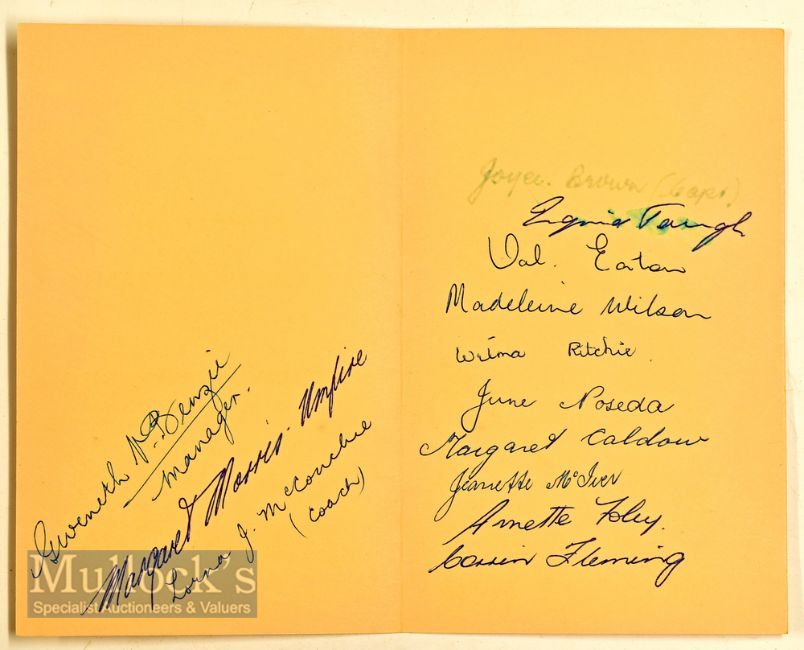 Gweneth N. Benzie
Manager.
Margaret Morris - Umpire
Lorna J. McConchie
(Coach)
Mullock's
Specialist Auctioneers & Valuers
Joyce. Brown (Capt)
Val. Eaton
Madeleine Wilson
Wilma Ritchie.
June Noseda
Margaret Caldow
Jeanette McIver
Annette Foley.
Fleming